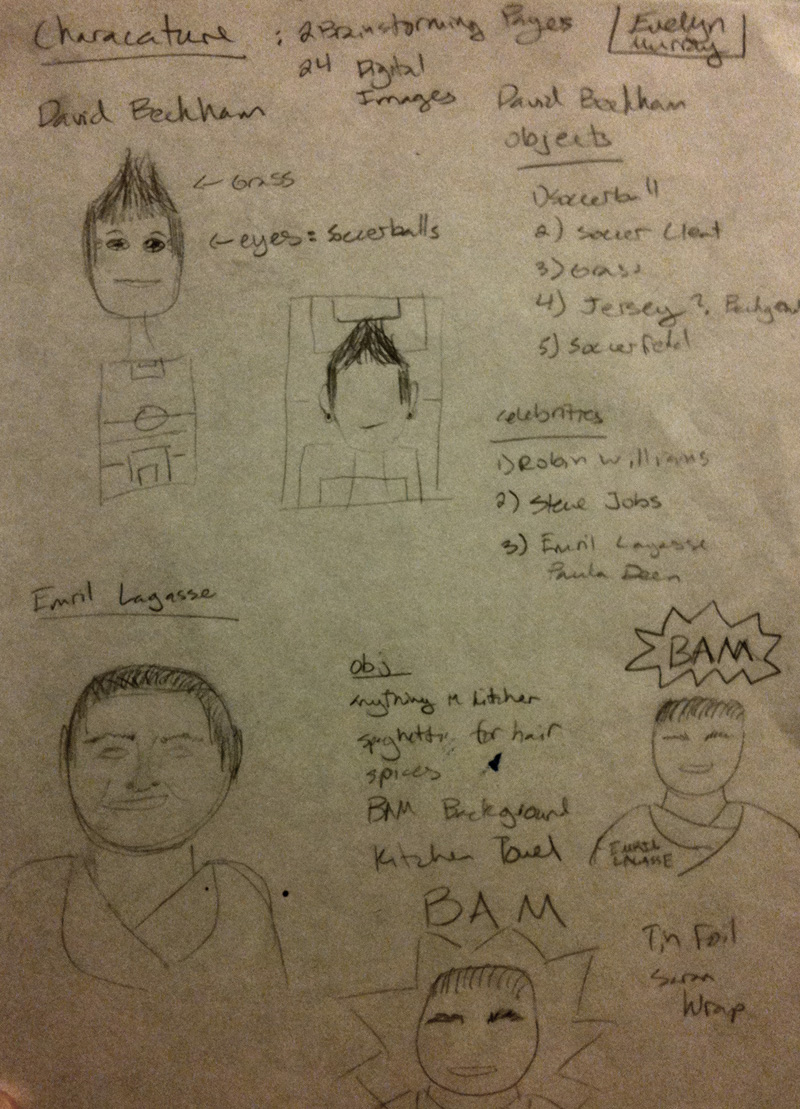 Characature : 2 Brainstorming Pages
24 Digital
Images
Evelyn
Murray
David Beckham
← Grass
← eyes = Soccerballs
David Beckham
Objects
1) Soccerball
2) Soccer Cleat
3) Grass
4) Jersey ?,
5) Soccerfield
Celebrities
1) Robin Williams
2) Steve Jobs
3) Emril Lagasse
Paula Deen
Emril Lagasse
obj
anything in kitchen
spaghetti for hair
spices
BAM Background
Kitchen Towel
BAM
EMRIL
LAGASSE
BAM
Tin Foil
Saran
Wrap